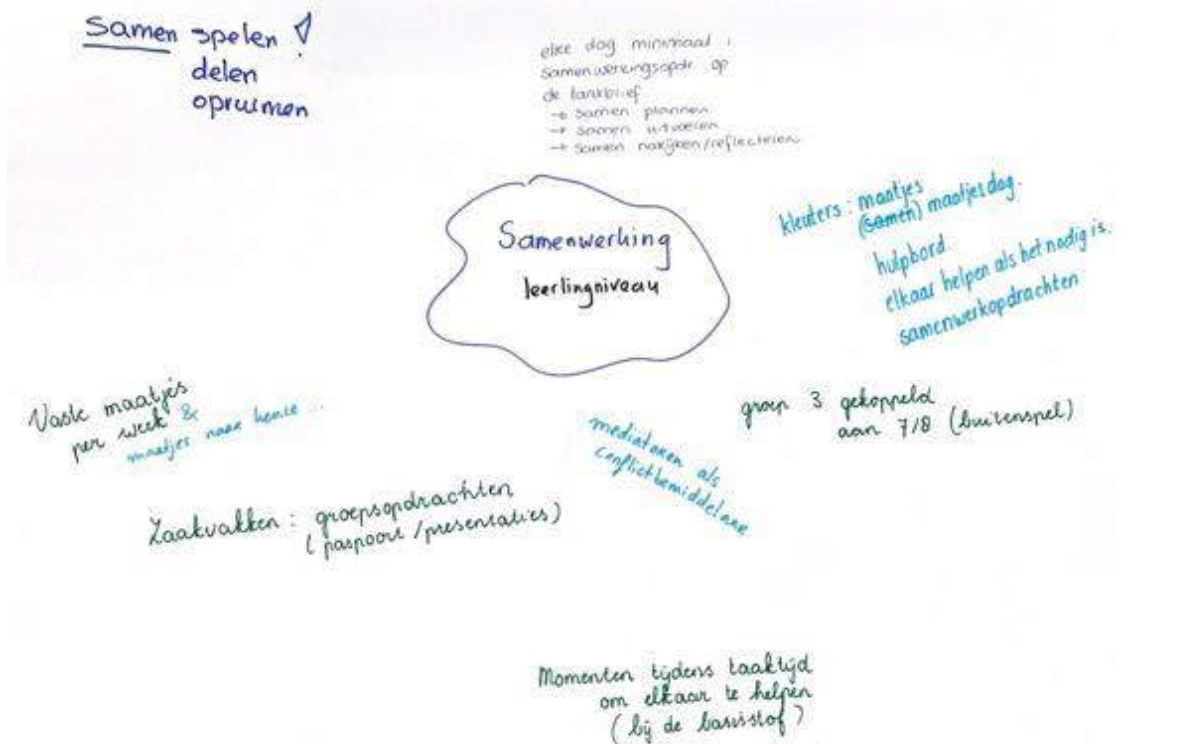 Samen spelen !
delen
opruimen
elke dag minimaal 1
samenwerkingsopdr. op
de taakbrief
→ samen plannen
→ samen uitvoeren
→ samen nakijken/reflecteren
Samenwerking
leerlingniveau
kleuters : maatjes
(samen) maatjesdag.
hulpbord
elkaar helpen als het nodig is.
samenwerkopdrachten
Vaste maatjes
per week &
maatjes naar keuze ...
groep 3 gekoppeld
aan 7/8 (buitenspel)
mediatoren als
conflictbemiddelaar
Zaakvakken : groepsopdrachten
(paspoort/presentaties)
Momenten tijdens taaktijd
om elkaar te helpen
(bij de basisstof)